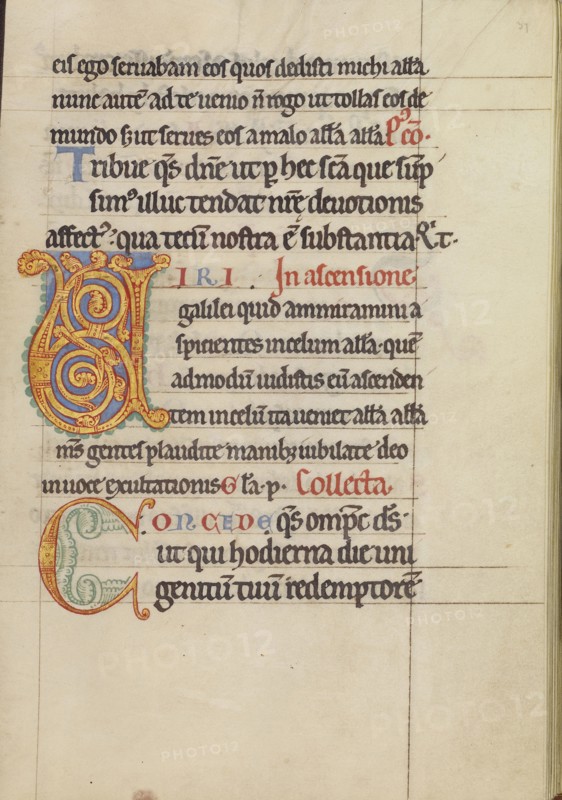 eis ego seruabam eos quos dedisti michi allã
nunc autẽ ad te uenio ñ rogo ut tollas eos de
mundo sꝫ ut serues eos a malo allã allã P͛ cõ.
Tribue q̃s dñe ut ꝑ hec sc̃a que sũp
simꝰ illuc tendat nr̃e deuotionis
affectꝰ: qua tecũ nostra ẽ substantia. R̃.t.
VIRI. In ascensione
galilei quid ammiramini a
spicientes in celum allã. quẽ
admodũ uidistis eũ ascenden
tem in celũ ita ueniet allã allã
ms̃ gentes plaudite manibꝫ iubilate deo
in uoce exultationis Gl̃a. p. Collecta.
CONCEDE q̃s omp̃c d̃s.
ut qui hodierna die uni
genitũ tuũ redemptorẽ